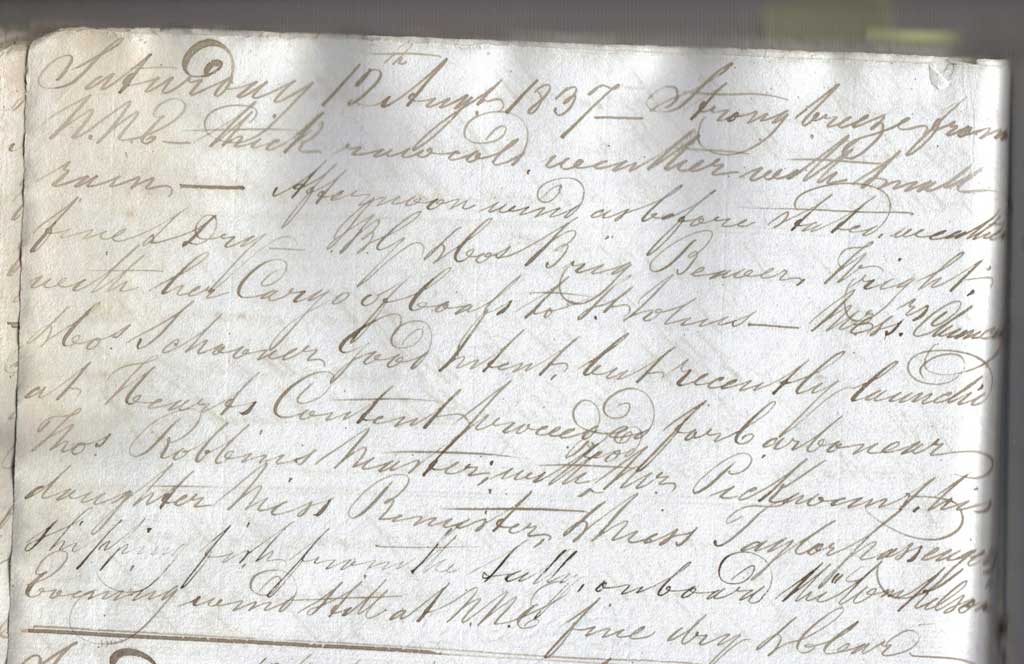 Saturday 12th Augt. 1837 — Strong breeze from
N.N.E — thick raw cold weather with small
rain — Afternoon wind as before stated, weather
fine & Dry — B.G &Cos Brig Beaver, Wright,
with her Cargo of Coals to St. Johns — Messrs.
&Cos. Schooner Good Intent, but recently launch'd
at Hearts Content proceeded for Carbonear
Thos. Robbins Master, with Mr. his
daughter Miss & Miss Taylor passengers
shipping fish from the onboard the Kelson
Evening wind still at N.N.E fine dry & Clear —